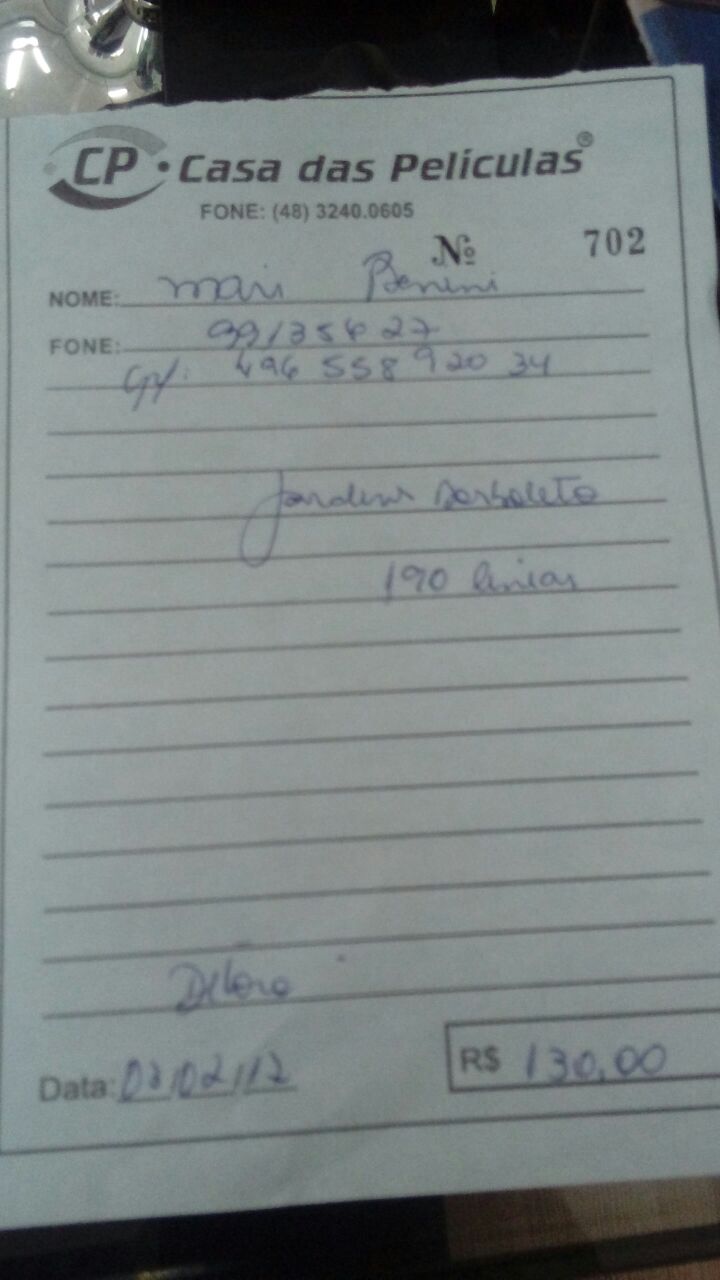 CP • Casa das Películas®
FONE: (48) 3240.0605
Nº 702
NOME: Benini
FONE: 99135627
Cpf: 496 558 920 34
Jardim Borboleta
190
Débora
Data: 02/02/17 R$ 130,00